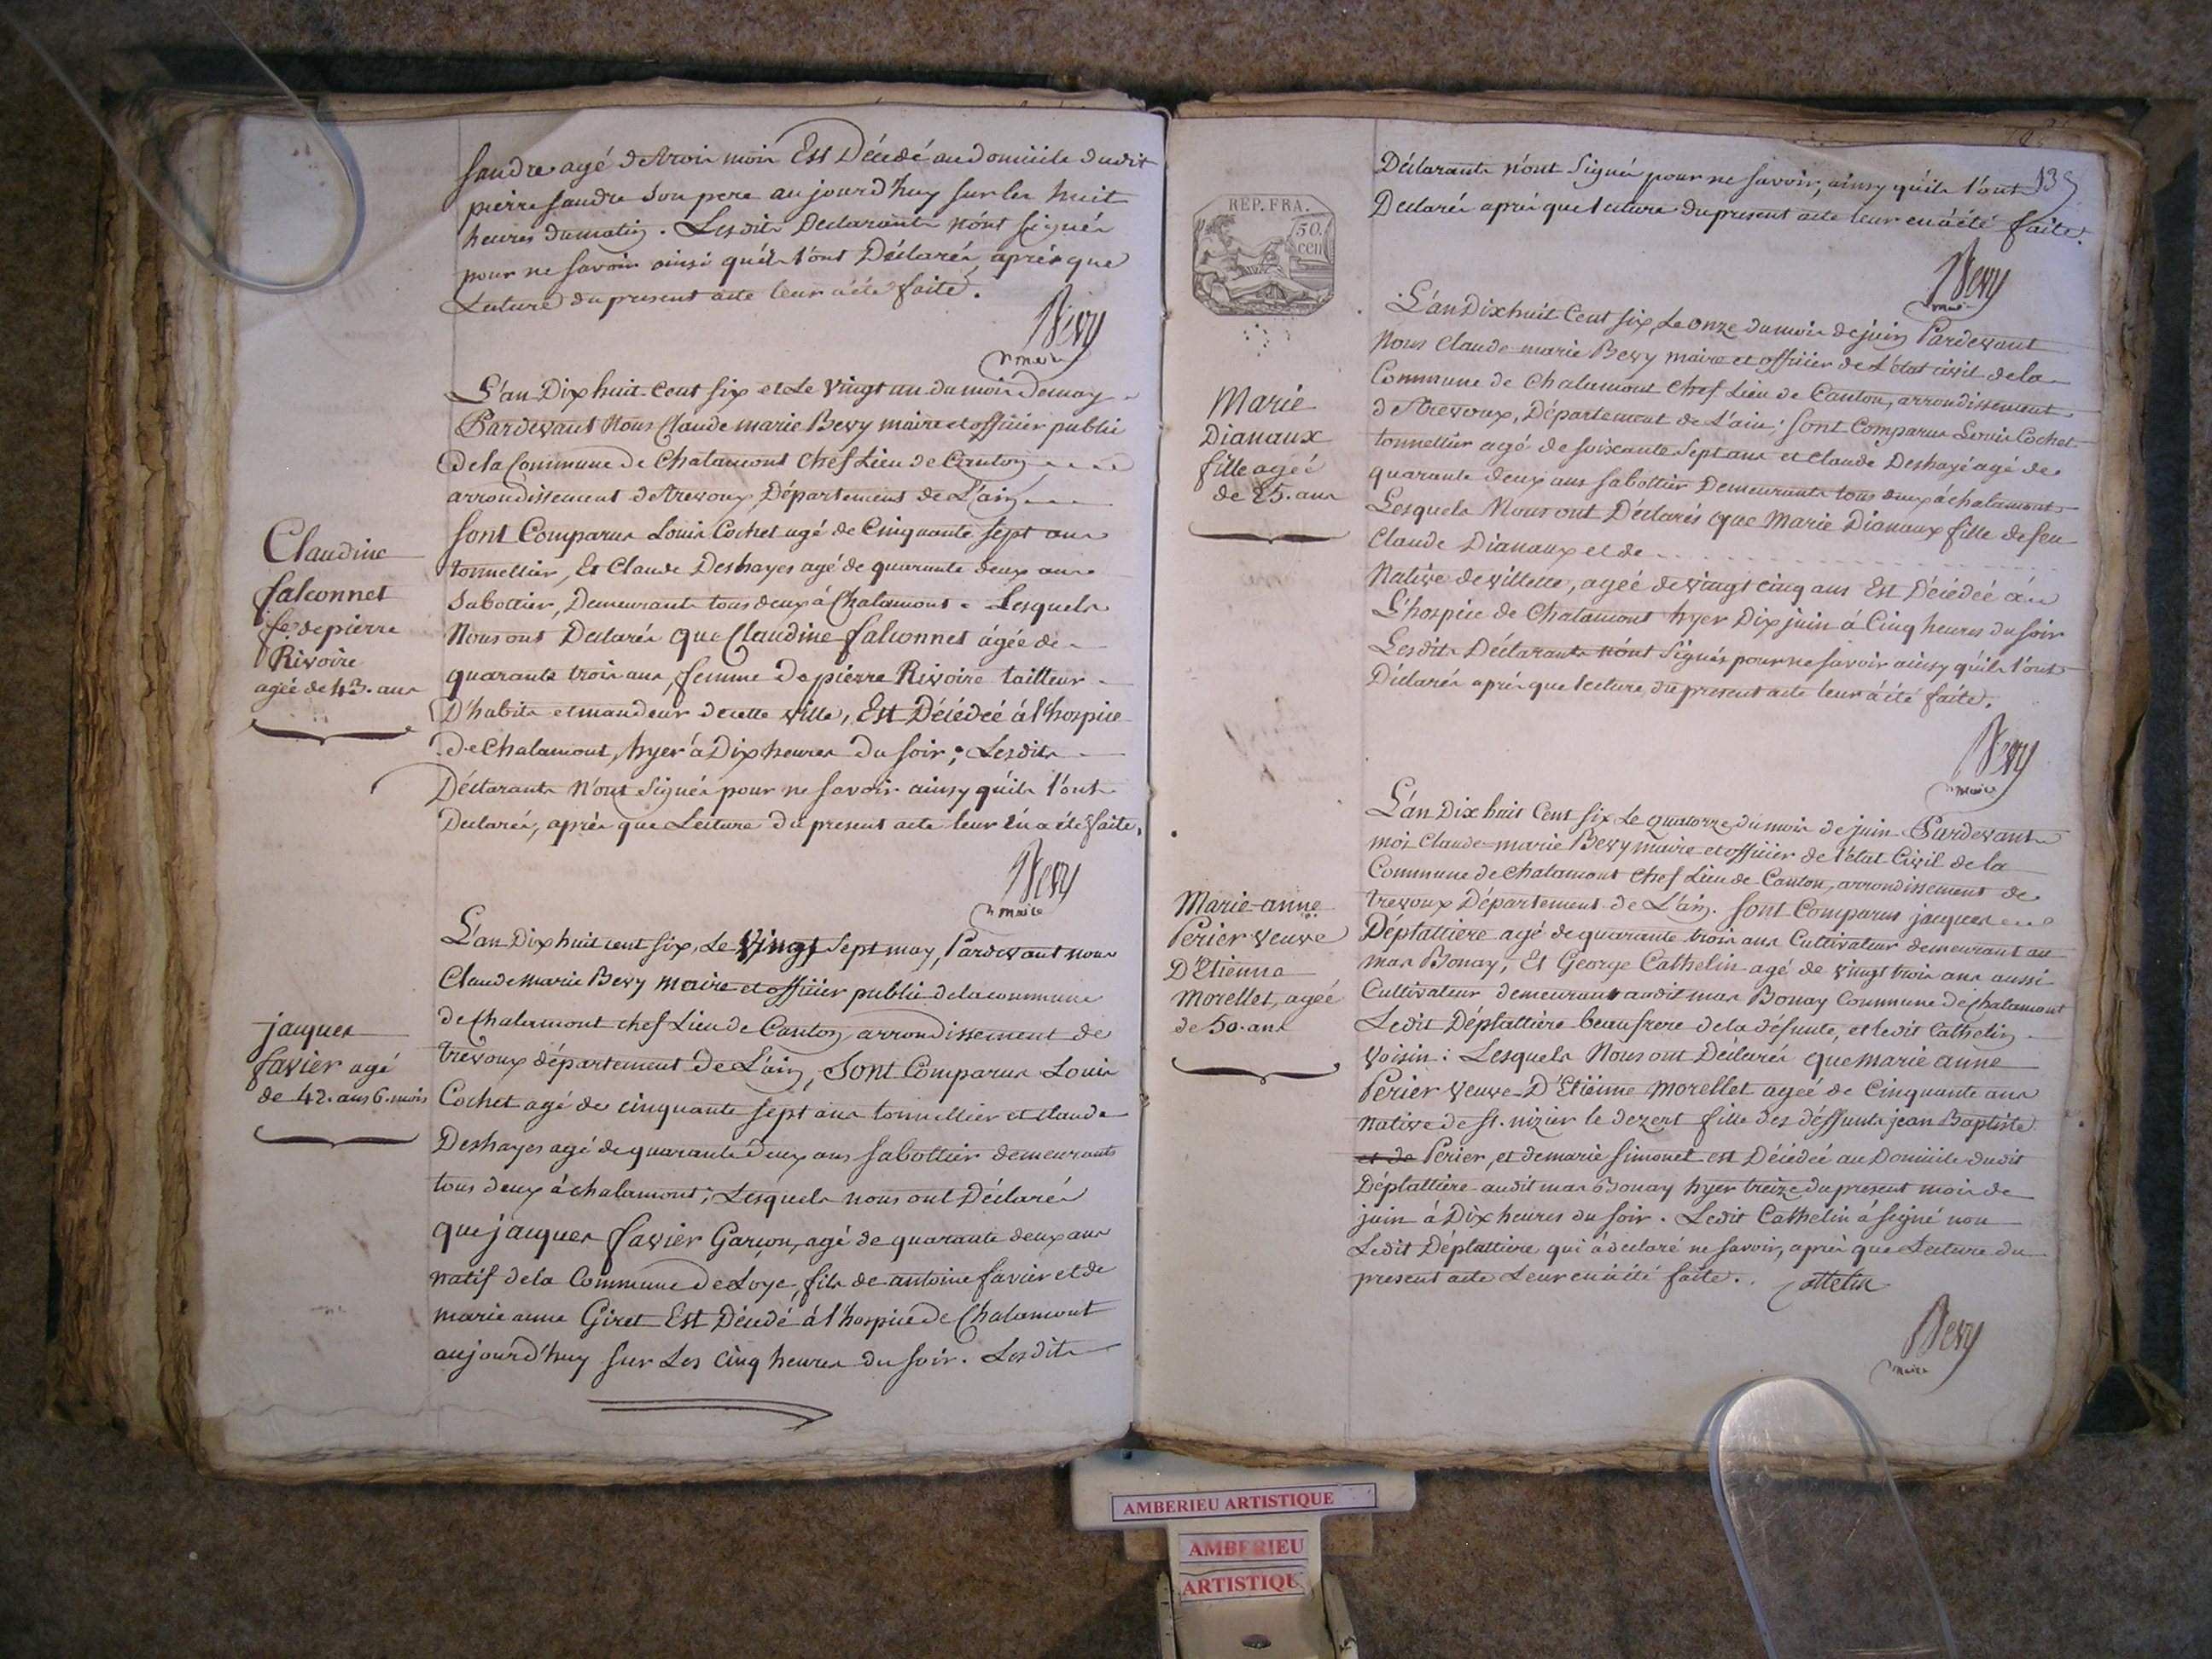 Saudre agé de trois mois Est Décédé au domicile dudit
pierre Saudre son pere aujourd'huy sur les huit
heures du matin. Lesdits Declarants n'ont signés
pour ne savoir ainsi qu'ils l'ont Déclarés après que
Lecture du present acte leur a été faite.
Bevy
maire
L'an Dix huit cent six et Le vingt un du mois de may
Pardevant Nous Claude marie Bevy maire et officier public
de la Commune de Chalamont Chef Lieu de Canton
arrondissement de Trevoux Département de L'ain
Claudine
falconnet
fe de pierre
Rivoire
agée de 43. ans
sont Comparus Louis Cochet agé de Cinquante sept ans
tonnellier, Et Claude Deshayes agé de quarante deux ans
Sabottier, Demeurants tous deux à Chalamont. Lesquels
Nous ont Declarés que Claudine falconnet agée de
quarante trois ans, femme de pierre Rivoire tailleur
D'habits et mandeur de cette ville, Est Décédeé à l'hospice
de Chalamont, hyer à Dix heures du soir; Lesdits
Déclarants N'ont Signés pour ne savoir ainsy qu'ils l'ont
Declarés, après que Lecture du present acte leur en a été faite.
Bevy
maire
L'an Dix huit cent six, Le Vingt Sept may, Pardevant nous
Claude Marie Bevy maire et officier public de la commune
de Chalamont chef Lieu de Canton arrondissement de
trevoux département de L'ain, Sont Comparus Louis
jacques
favier agé
de 42. ans 6. mois
Cochet agé de cinquante sept ans tonnellier et claude
Deshayes agé de quarante deux ans sabottier demeurants
tous deux à chalamont; Lesquels nous ont Déclarés
que jacques favier Garçon, agé de quarante deux ans
natif de la Commune de Loye, fils de antoine favier et de
marie anne Giret Est Décedé à l'hospice de Chalamont
aujourd'huy sur Les cinq heures du soir. Lesdits
135
Déclarants n'ont Signés pour ne savoir, ainsy qu'ils l'ont
Declarés après que lecture du present acte leur en à été faite.
Bevy
maire
REP. FRA.
50.
cen
L'an Dix huit Cent six, Le onze du mois de juin Pardevant
Nous Claude marie Bevy maire et officier de L'état civil de la
Commune de Chalamont Chef Lieu de Canton, arrondissement
de Trevoux, Département de L'ain; sont Comparus Louis Cochet
Marie
Dianaux
fille ageé
de 25. ans
tonnellier agé de soixante Sept ans et Claude Deshayé agé de
quarante deux ans sabottier Demeurants tous deux à chalamont
Lesquels Nous ont Déclarés que Marie Dianaux fille de feu
Claude Dianaux et de
Native de villette, ageé de vingt cinq ans Est Décédeé à
L'hospice de Chalamont hyer Dix juin à Cinq heures du soir
Lesdits Déclarants n'ont Signés pour ne savoir ainsy qu'ils l'ont
Déclarés après que lecture du present acte leur à été faite.
Bevy
maire
L'an Dix huit Cent six Le quatorze du mois de juin Pardevant
moi Claude-marie Bevy maire et officier de l'état Civil de la
Commune de Chalamont Chef Lieu de Canton, arrondissement de
trevoux Département de L'ain. sont Comparus jacques
Marie-anne
Périer veuve
D'Etienne
Morellet, ageé
de 50. ans
Déplattiere agé de quarante trois ans Cultivateur demeurant au
mas Bonay, Et George Cathelin agé de vingt trois ans aussi
Cultivateur demeurant audit mas Bonay Commune de Chalamont
Ledit Déplattière beaufrere de la défunte, et ledit Cathelin
voisin: Lesquels Nous ont Déclarés que marie anne
Périer veuve D'Etiënne Morellet ageé de Cinquante ans
Native de st. nizier le dezert fille des déffunts jean Baptiste
et de Périer, et de marie Simonet est Décédeé au Domicile dudit
Déplattiere audit mas Bonay hyer treize du present mois de
juin à Dix heures du soir. Ledit Cathelin à signé non
Ledit Déplattiere qui à declaré ne savoir, après que Lecture du
present acte Leur en à été faite. Cattelin
Bevy
maire
AMBERIEU ARTISTIQUE
AMBERIEU
ARTISTIQUE